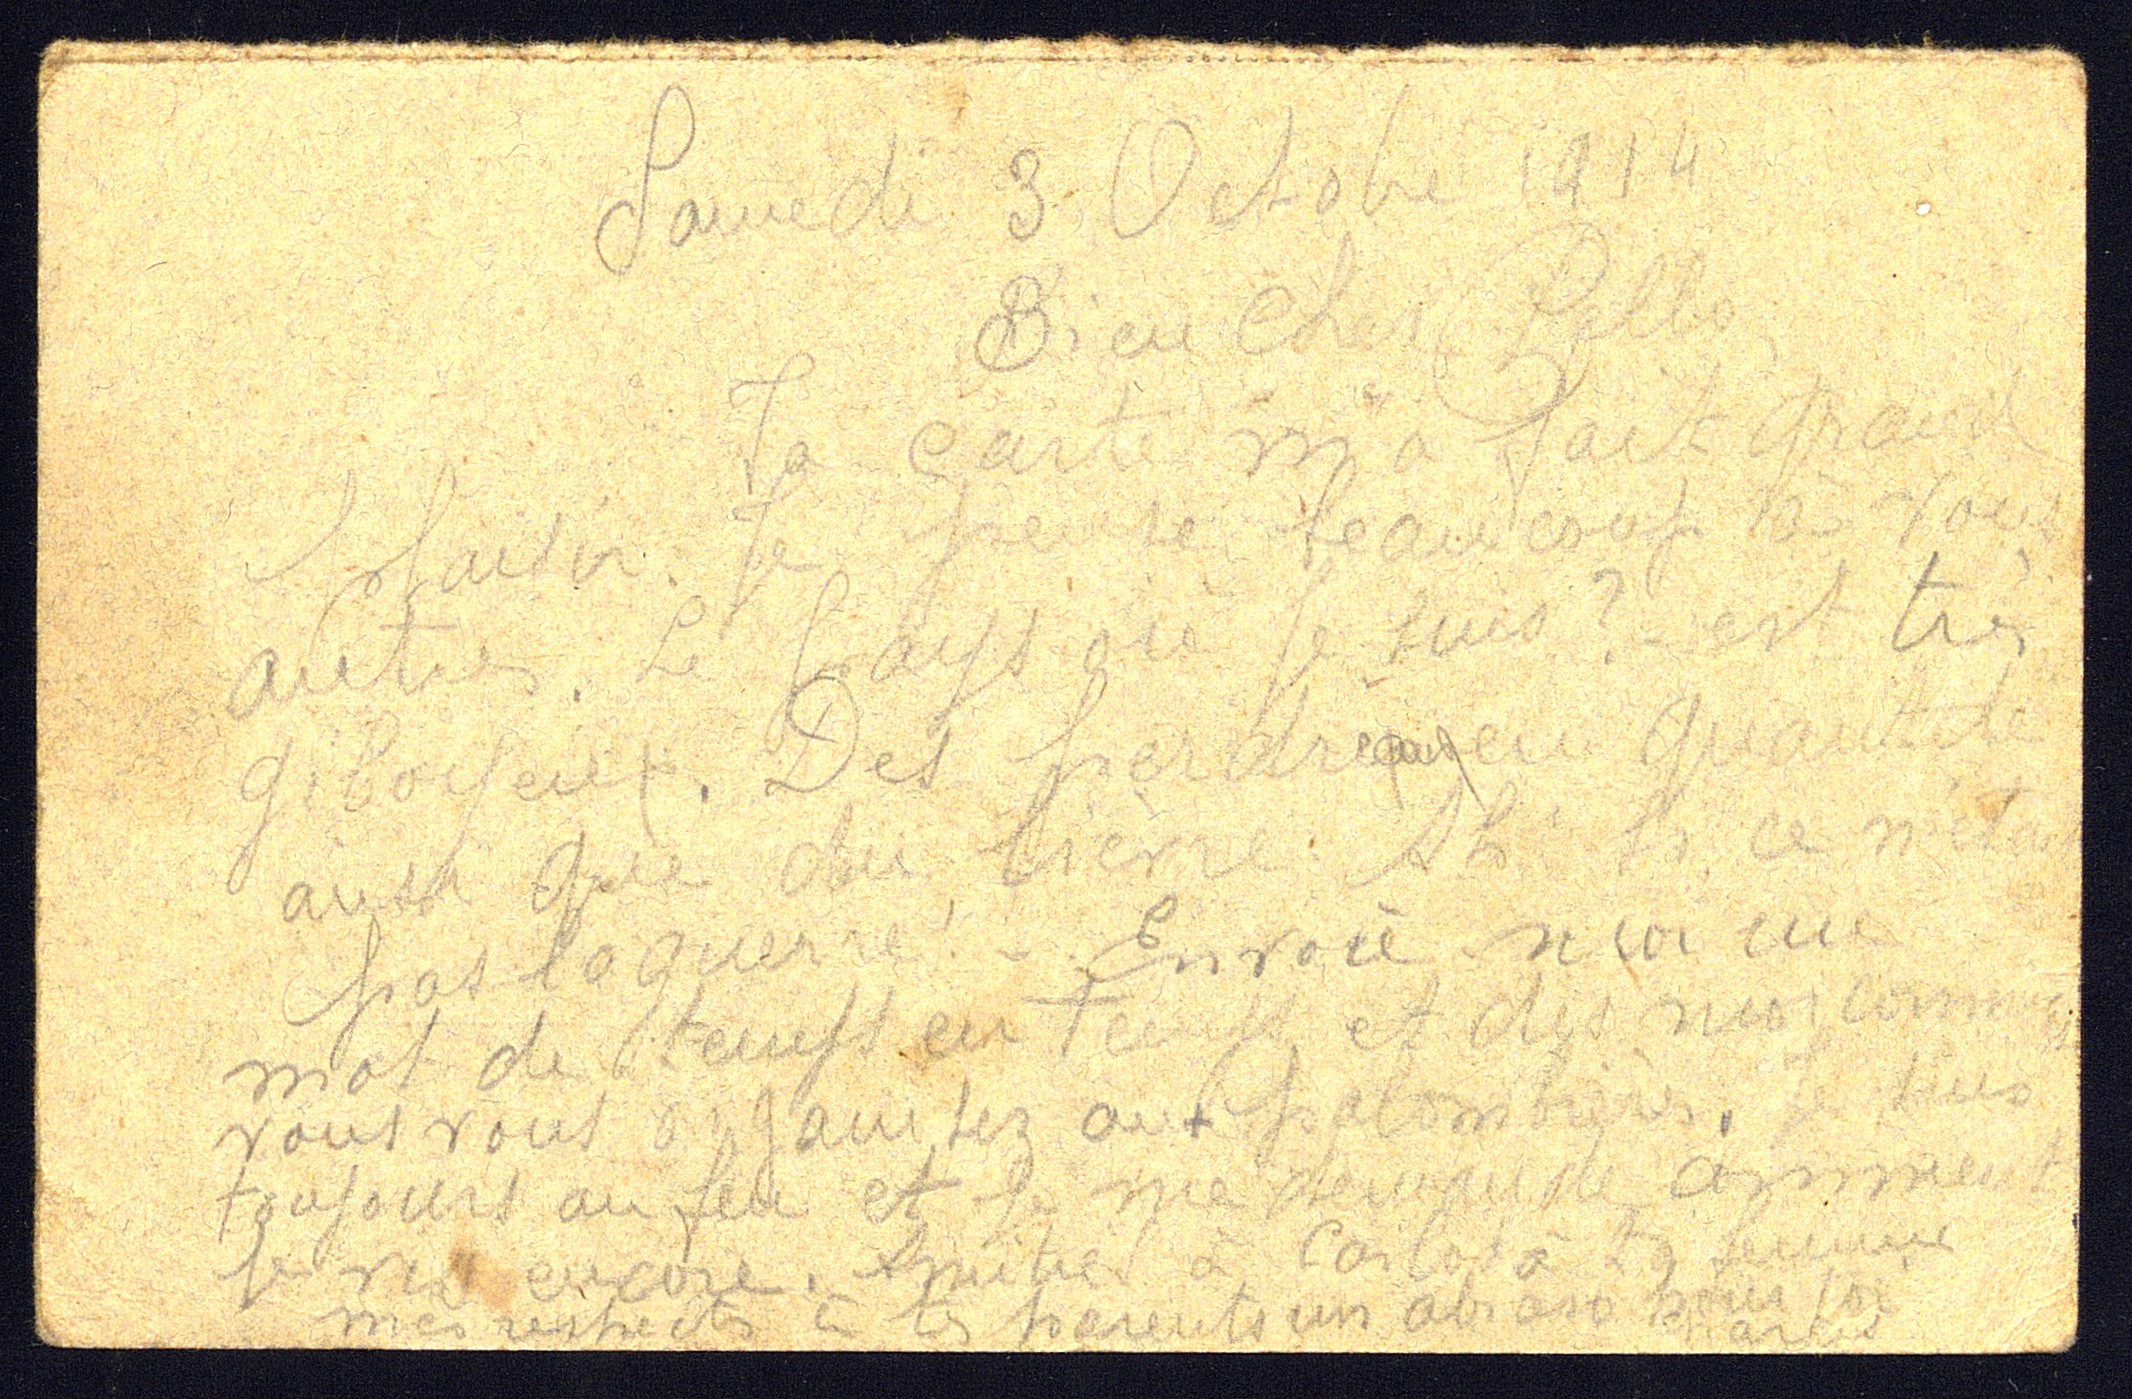 Samedi 3 Octobre 1914
Bien cher Pello
Ta carte m'a fait grand
plaisir. Je pense beaucoup à vous
autres. Le pays où je suis ? - est très
giboyeux. Des perdreaux en quantité
ainsi que du lièvre. Ah si ce n'était
pas la guerre ! - Envoie moi un
mot de temps en temps et dis moi comment
vous vous organisez aux palombières. Je suis
toujours au feu et je me demande comment
je vis encore. Amitiés à Carlos à ta femme
mes respects à tes parents un abrazo pour toi
Charles